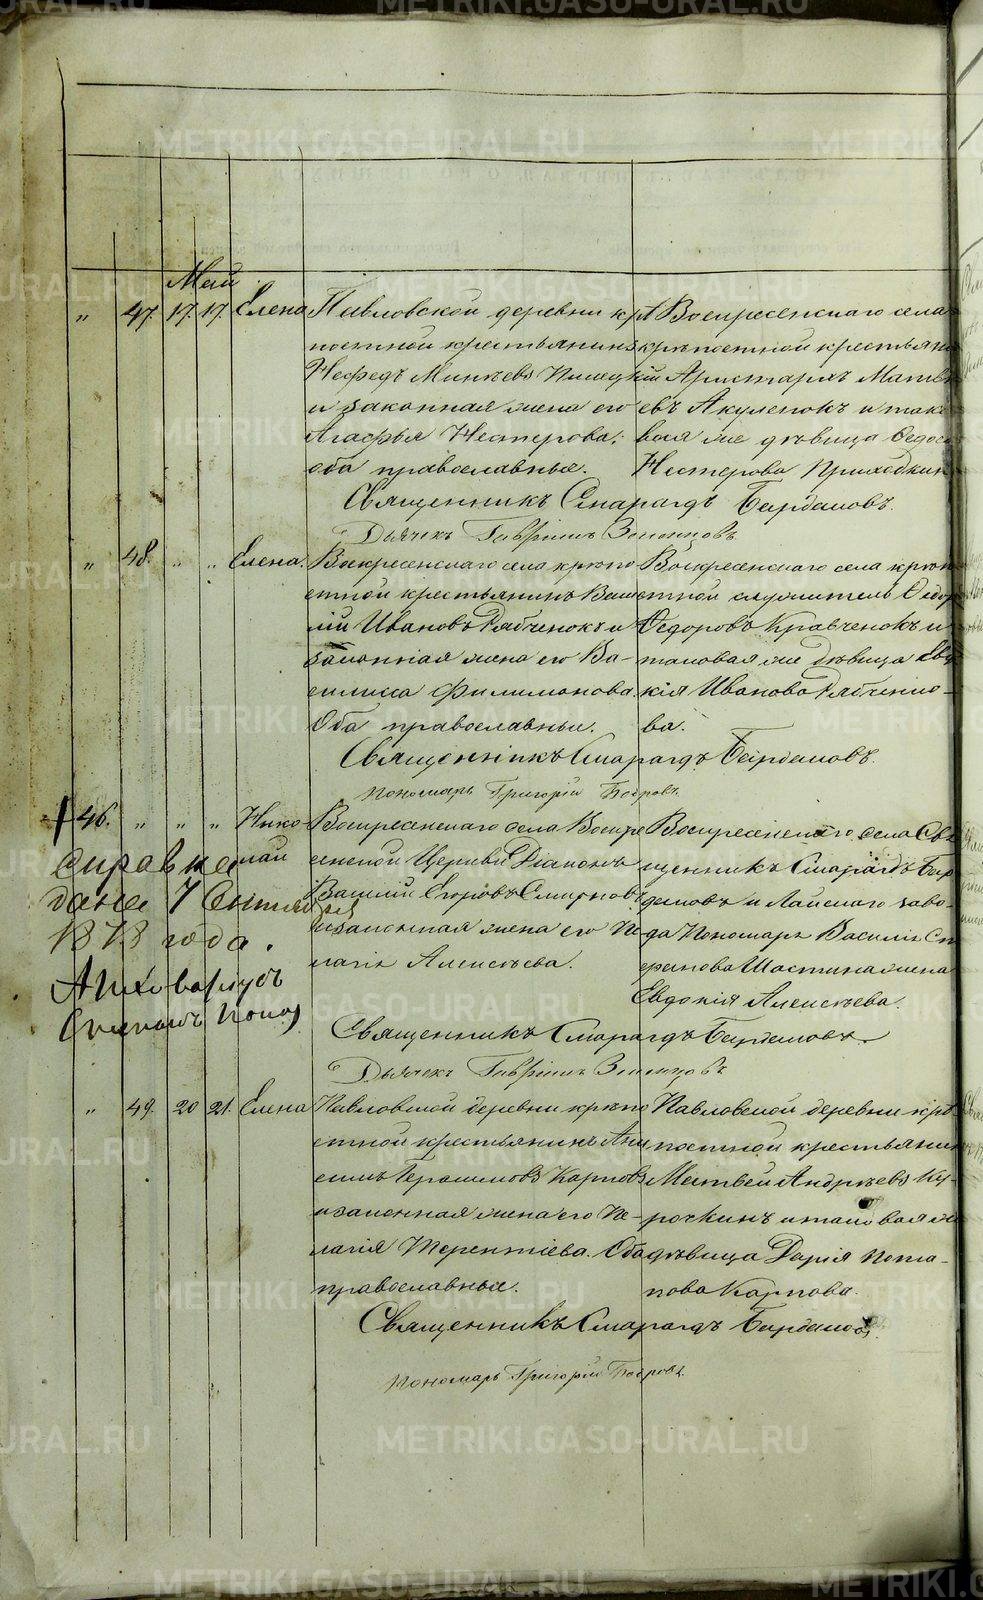 Май
" 47. 17. 17. Елена
Павловской деревни крѣ
постной крестьянинъ
Нефедъ Минѣевъ
и законная жена его
Агафья Нестерова,
оба православные.
Воскресенскаго села
крѣпостной крестьян
Аристархъ Матвѣ
евъ Акуленокъ и тако
вая же дѣвица Федос
Нестерова Приходкин
Священникъ Смарагдъ Бардамовъ.
Дьячекъ Гавріилъ
" 48. " " Елена.
Воскресенскаго села крѣпо
стной крестьянинъ Васи
лій Ивановъ Рябченокъ и
законная жена его Ва-
силиса Филимонова.
Оба православные.
Воскресенскаго села крѣп
стной служитель Федор
Федоровъ Кравченокъ и
таковая же дѣвица Евд
кія Иванова Рябченко-
ва.
Священникъ Смарагдъ Бардамовъ.
Пономарь Григорій
46. " " " Нико
лай
Воскресенскаго села Воскре
сенской Церкви Діаконъ
Василій Егоровъ Смирновъ
и законная жена его Пе
лагія Алексѣева.
Воскресенскаго села Свя
щенникъ Смарагдъ Бар
дамовъ и Лайскаго заво-
да Пономаря Василія Сте
фанова Шастина жена
Евдокія Алексѣева.
справка
дана 7 Сентября
1878 года.
Архиваріусъ
Священникъ Смарагдъ Бардамовъ
Дьячекъ Гавріилъ
" 49. 20 21. Елена
Павловской деревни крѣпо
стной крестьянинъ Ани
симъ Герасимовъ Карповъ
и законная жена его Пе-
лагія Терентіева. Оба
православные.
Павловской деревни крѣ
постной крестьянин
Матвей Андрѣевъ Ку-
рочкинъ и таковая ж
дѣвица Дарія Пота-
пова Карпова.
Священникъ Смарагдъ Бардамовъ.
Пономарь Григорій
METRIKI.GASO-URAL.RU